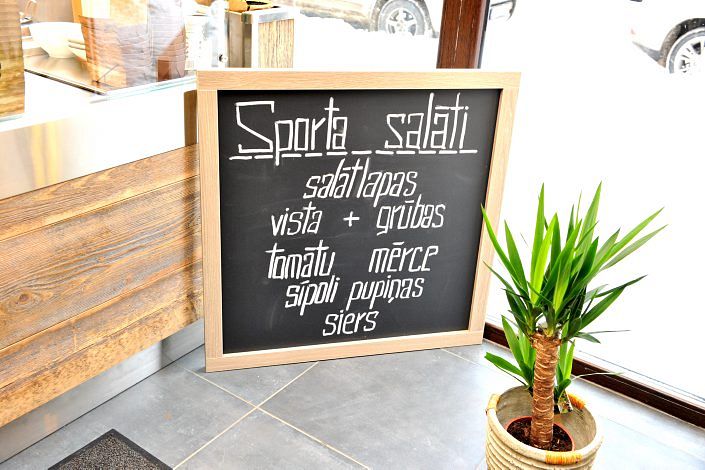 Sporta salāti
salātlapas
vista + grūbas
tomātu mērce
sīpoli pupiņas
siers